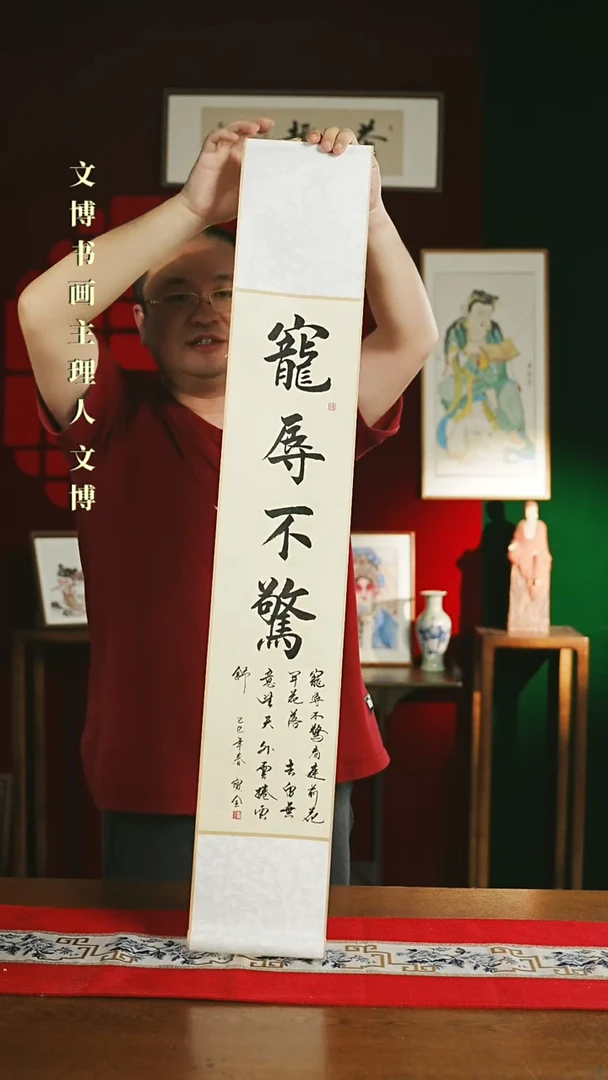 文博书画主理人 文博
寵辱不驚
寵辱不驚看庭前花
開花落 去留無
意望天外雲捲雲
舒
乙巳年春